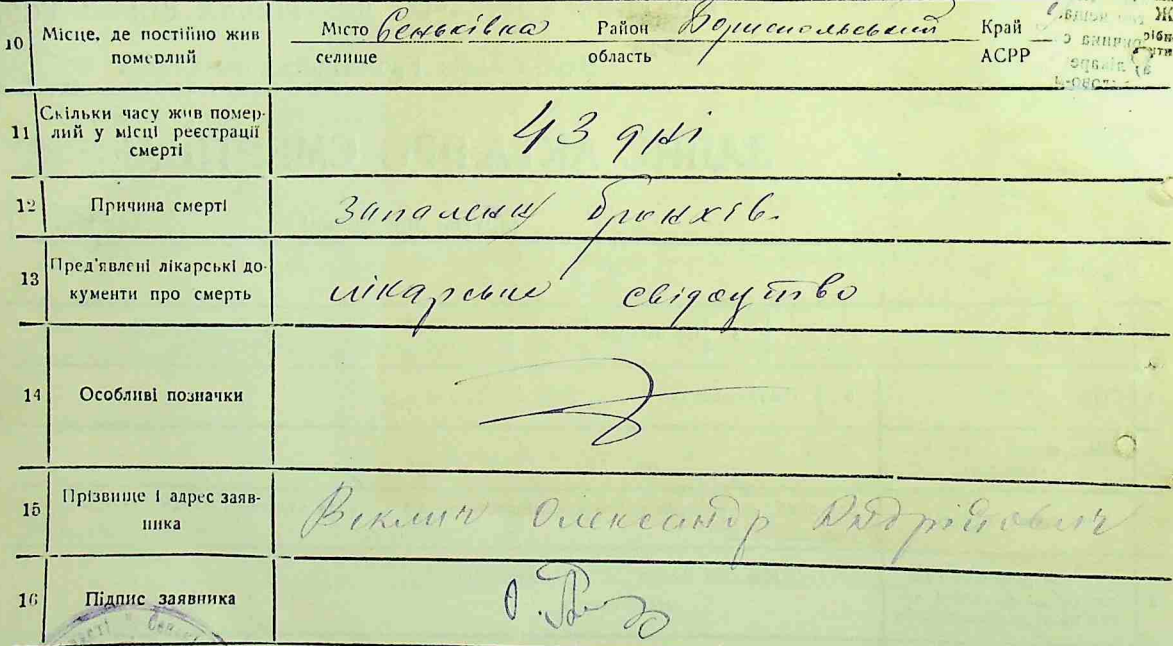 10 Місце, де постійно жив померлий
Місто Сеньківка Район Бориспольський Край
селище область АСРР
11 Скільки часу жив помер-
лий у місці реєстрації
смерті
43 дні
12 Причина смерті
Запалення бронхів.
13 Пред'явлені лікарські до-
кументи про смерть
лікарське свідоцтво
14 Особливі позначки
15 Прізвище і адрес заяв-
ника
Веклич Олександр Андрійович
16 Підпис заявника